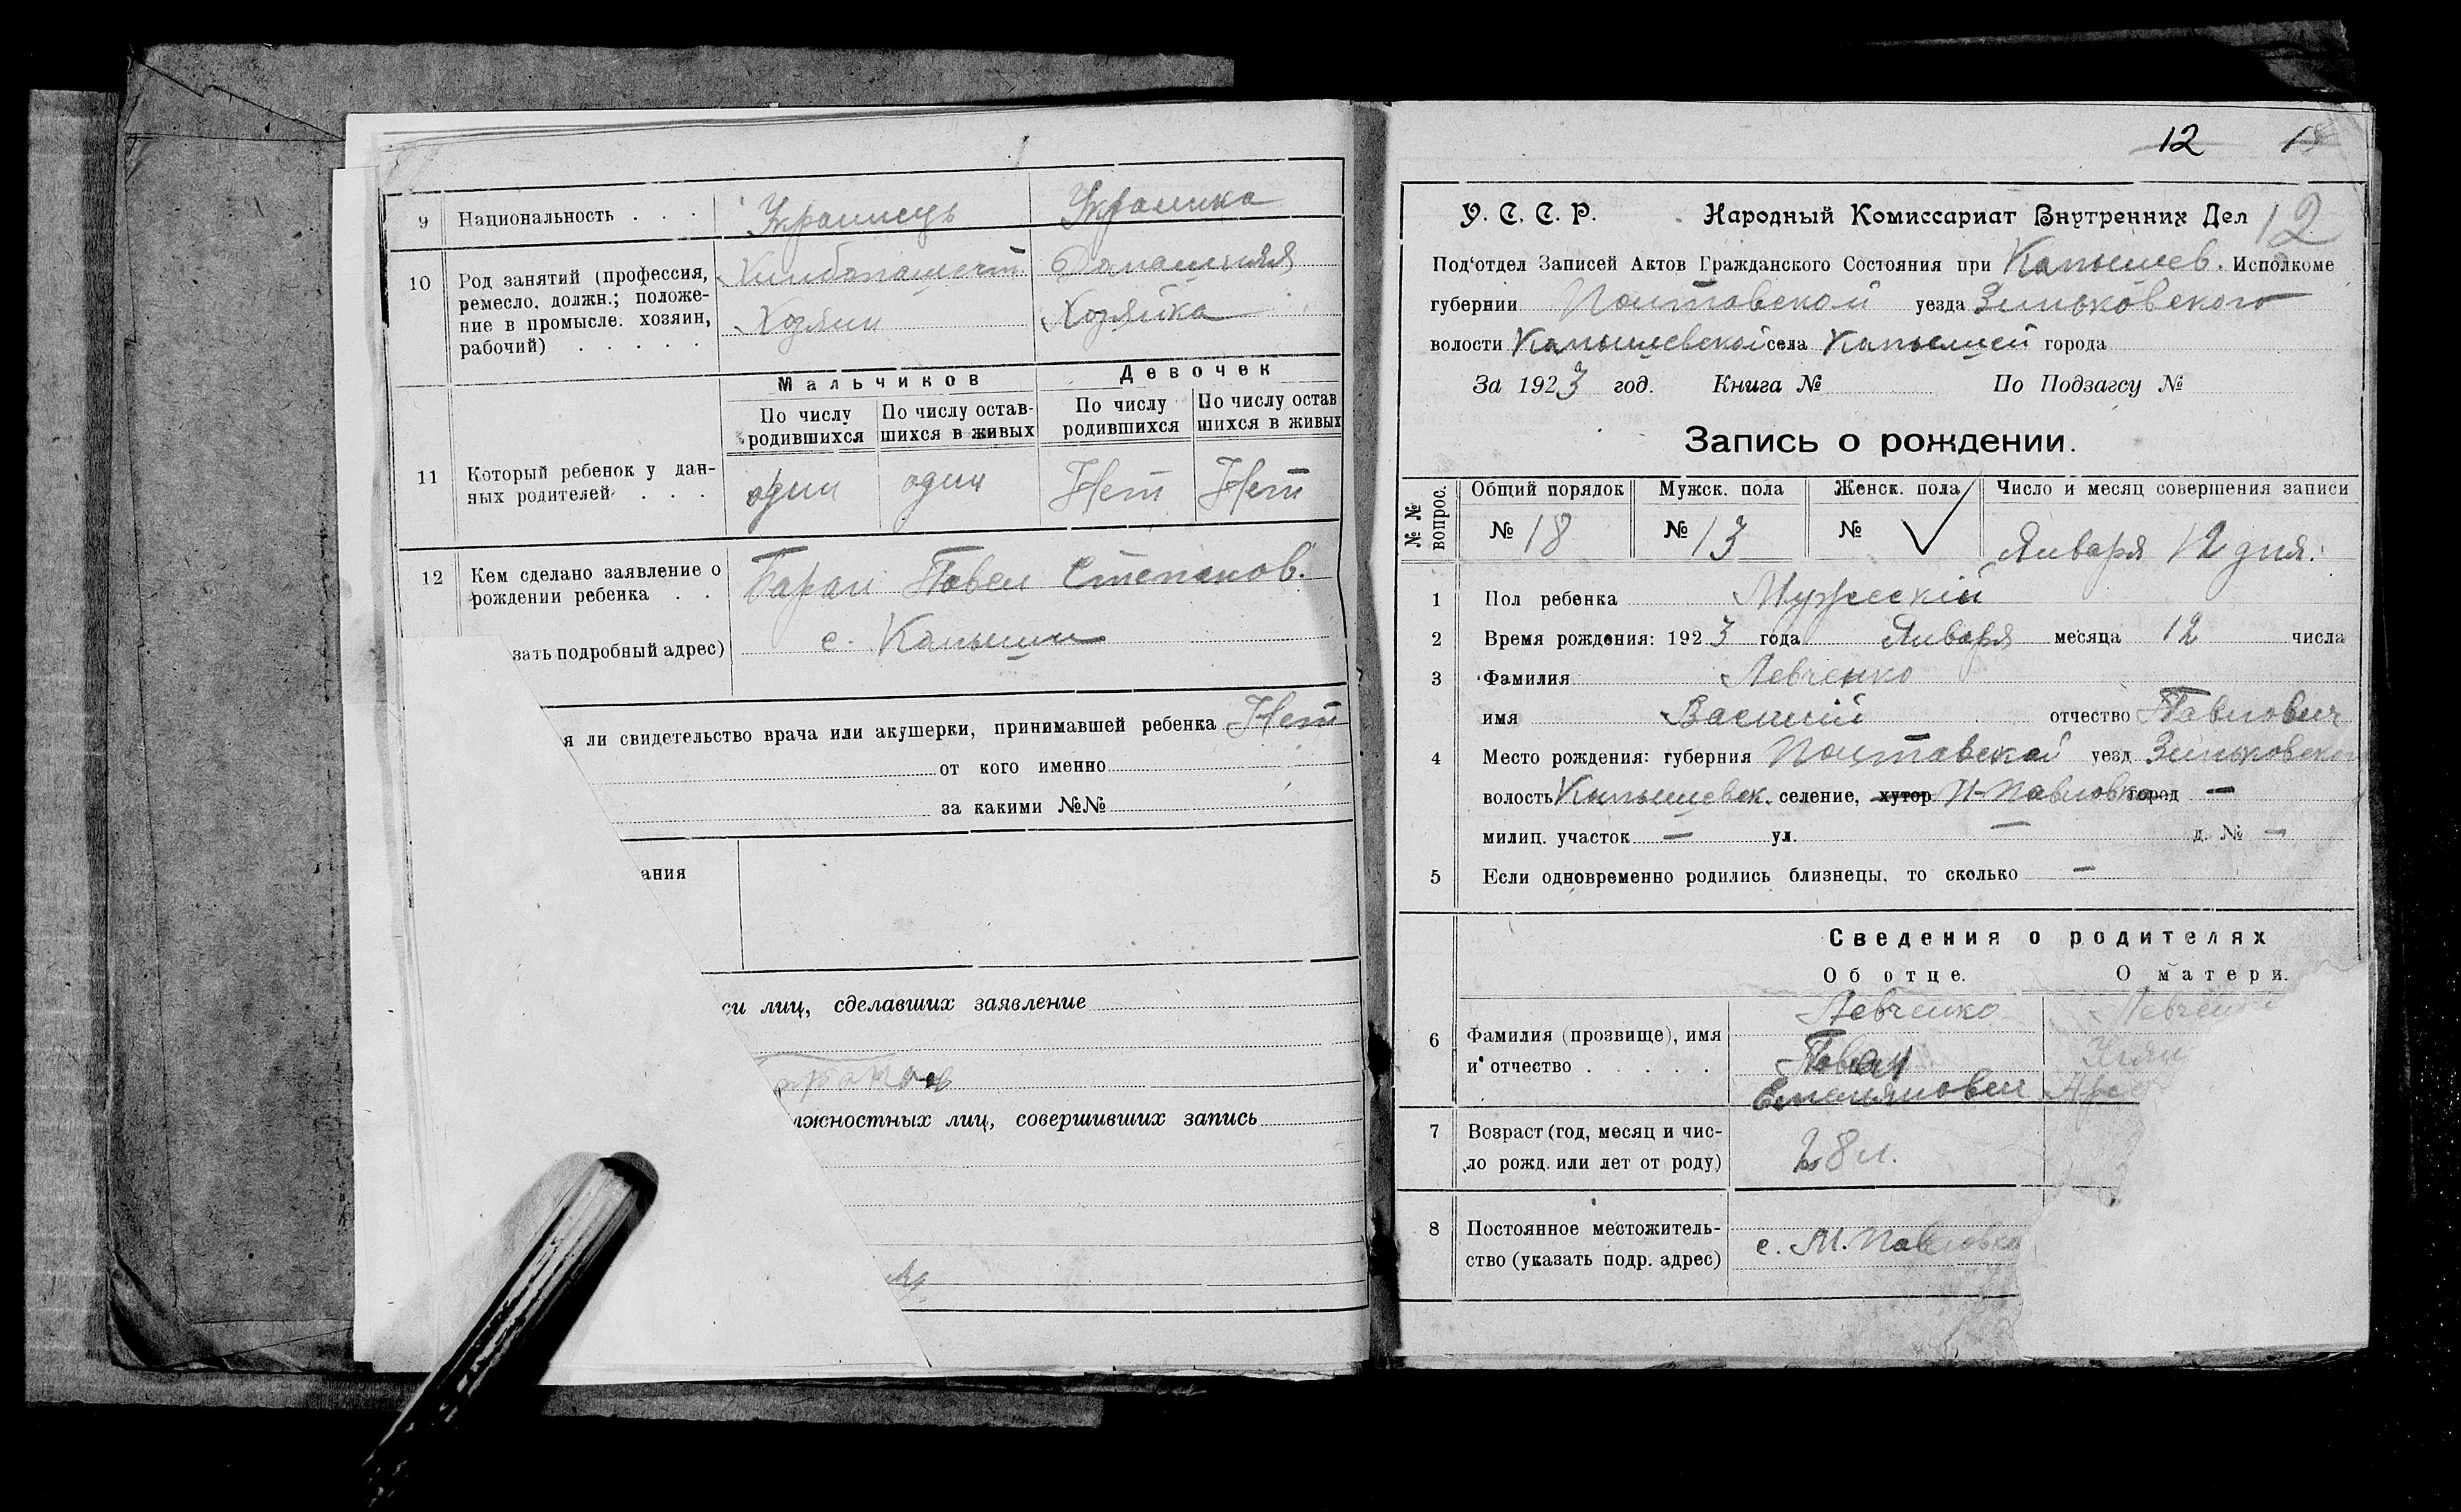 9 Национальность . . . Украинець Украинка
10 Род занятий (профессия, Хлебопашест. Домашняя
ремесло, должн.; положе-
ние в промысле: хозяин, Хозяин Хозяйка
рабочий) . . . . .
Мальчиков Девочек
По числу По числу остав- По числу По числу остав
родившихся шихся в живых родившихся шихся в живых
11 Который ребенок у дан- один один Нет Нет
ных родителей . . .
12 Кем сделано заявление о Баран Павел Степанов.
рождении ребенка . .
зать подробный адрес) с. Капыши
я ли свидетельство врача или акушерки, принимавшей ребенка Нет
от кого именно
за какими №№
ания
си лиц, сделавших заявление
лжностных лиц, совершивших запись
12
У. С. С. Р. Народный Комиссариат Внутренних Дел 12
Под'отдел Записей Актов Гражданского Состояния при Капышев. Исполкоме
губернии Полтавской уезда Зиньковского
волости Капышевской села Капышей города
За 1923 год. Книга № По Подзагсу №
Запись о рождении.
№ № вопрос. Общий порядок Мужск. пола Женск. пола Число и месяц совершения записи
№ 18 № 13 № Января 12 дня.
1 Пол ребенка Мужескій
2 Время рождения: 1923 года Января месяца 12 числа
3 Фамилия Левченко
имя Василій отчество Павлович
4 Место рождения: губерния Полтавской уезд Зиньковской
волость Капышевск. селение, хутор Павловка город —
милиц. участок — ул. — д. № —
5 Если одновременно родились близнецы, то сколько —
Сведения о родителях
Об отце. О матери.
Левченко Левченко
6 Фамилия (прозвище), имя Павел
и отчество . . . . . Емельянович
7 Возраст (год, месяц и чис-
ло рожд. или лет от роду) 28 л.
8 Постоянное местожитель-
ство (указать подр. адрес) с. М. Павловка